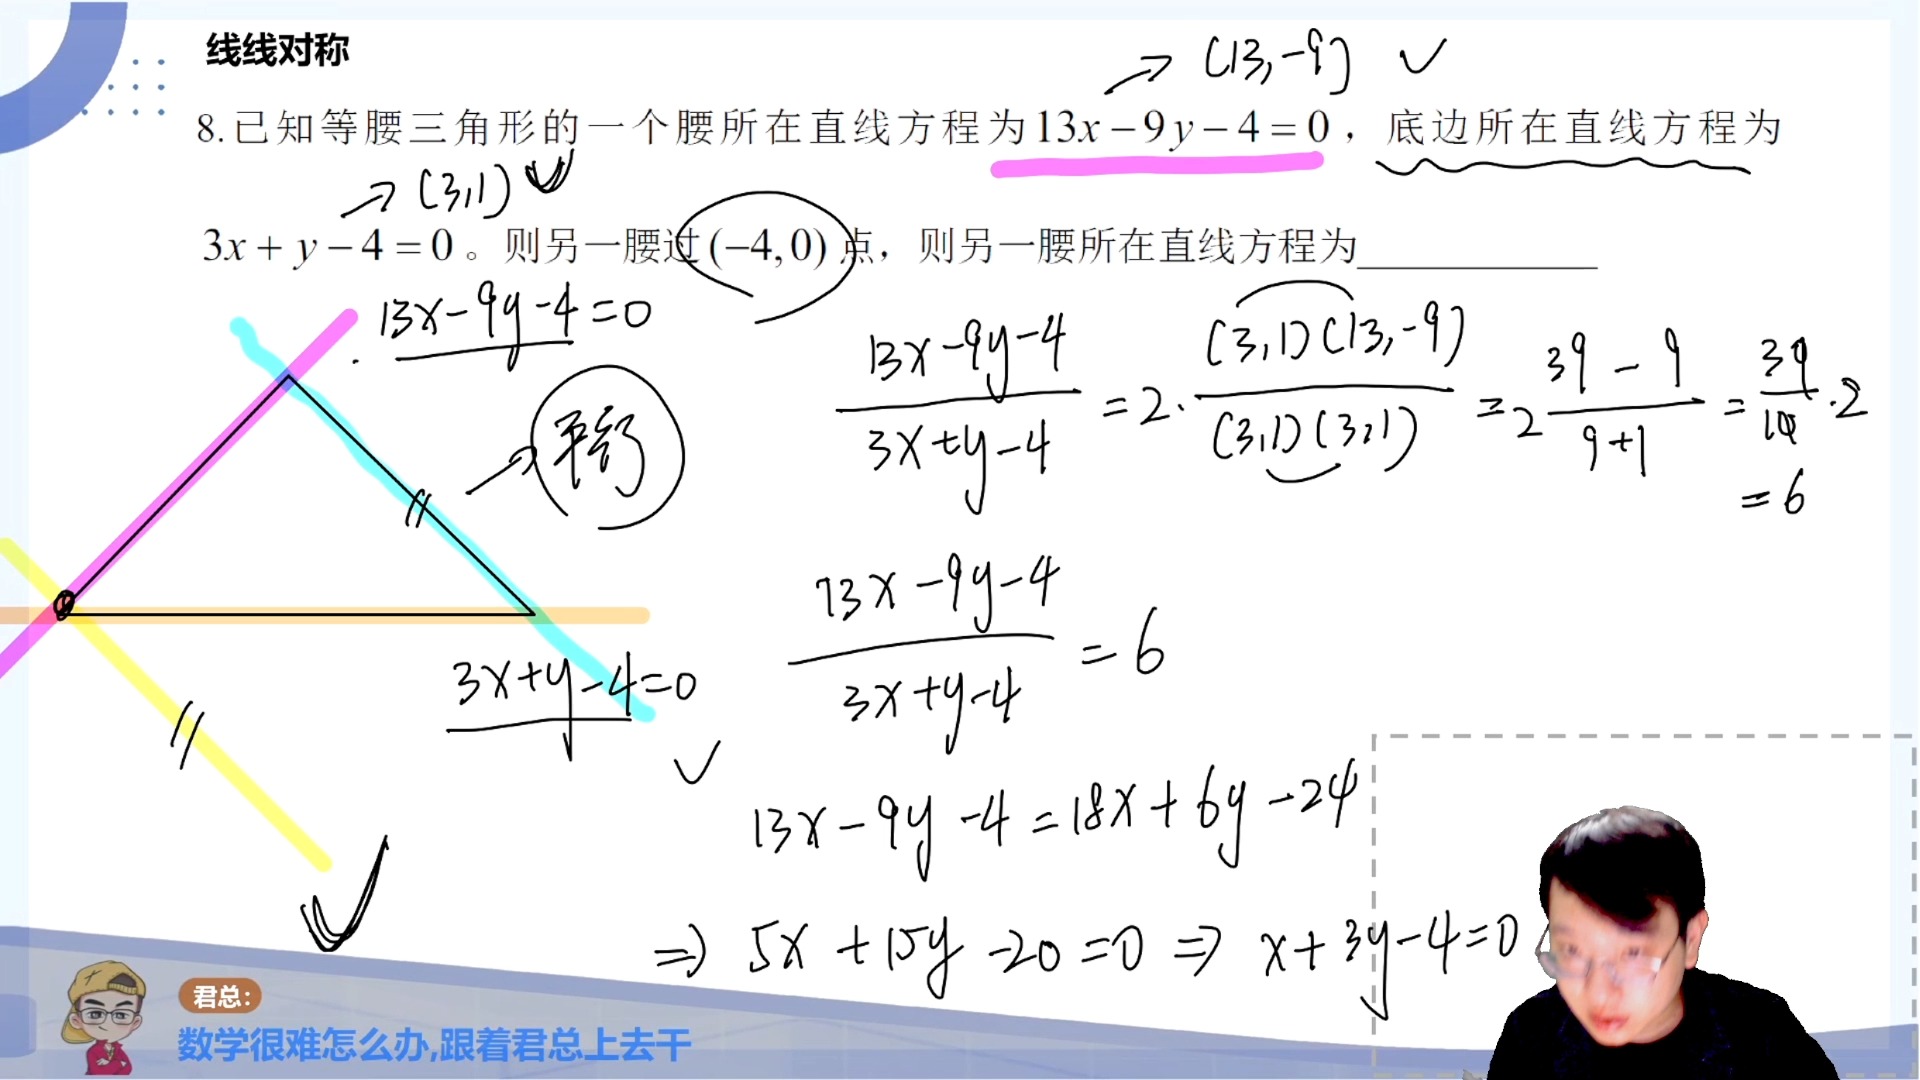 线线对称
→ (13,-9) ✓
8.已知等腰三角形的一个腰所在直线方程为13x-9y-4=0，底边所在直线方程为
→ (3,1) ✓
3x+y-4=0。则另一腰过(-4,0)点，则另一腰所在直线方程为____________
13x-9y-4=0
(13x-9y-4)/(3x+y-4) = 2·((3,1)(13,-9))/((3,1)(3,1)) = 2 (39-9)/(9+1) = 39/10·2
=6
平行
(13x-9y-4)/(3x+y-4) = 6
3x+y-4=0
✓
13x-9y-4=18x+6y-24
⇒ 5x+15y-20=0 ⇒ x+3y-4=0
君总:
数学很难怎么办,跟着君总上去干